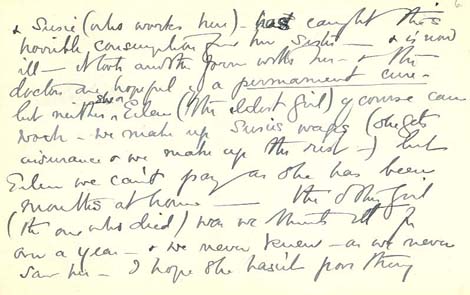 & Susie (who works here) – has caught this
horrible consumption from her Sister – & is now
ill – it took another form with her – & the
doctors are hopeful of a permanent cure –
but neither she or Eileen (the eldest girl) of course can
work – we make up Susie's wages (she gets
insurance & we make up the rest –) but
Eileen we can't pay as she has been
months at home – the other girl
(the one who died) was we think ill for
over a year – & we never knew – as we never
saw her – I hope she hasn't poor thing